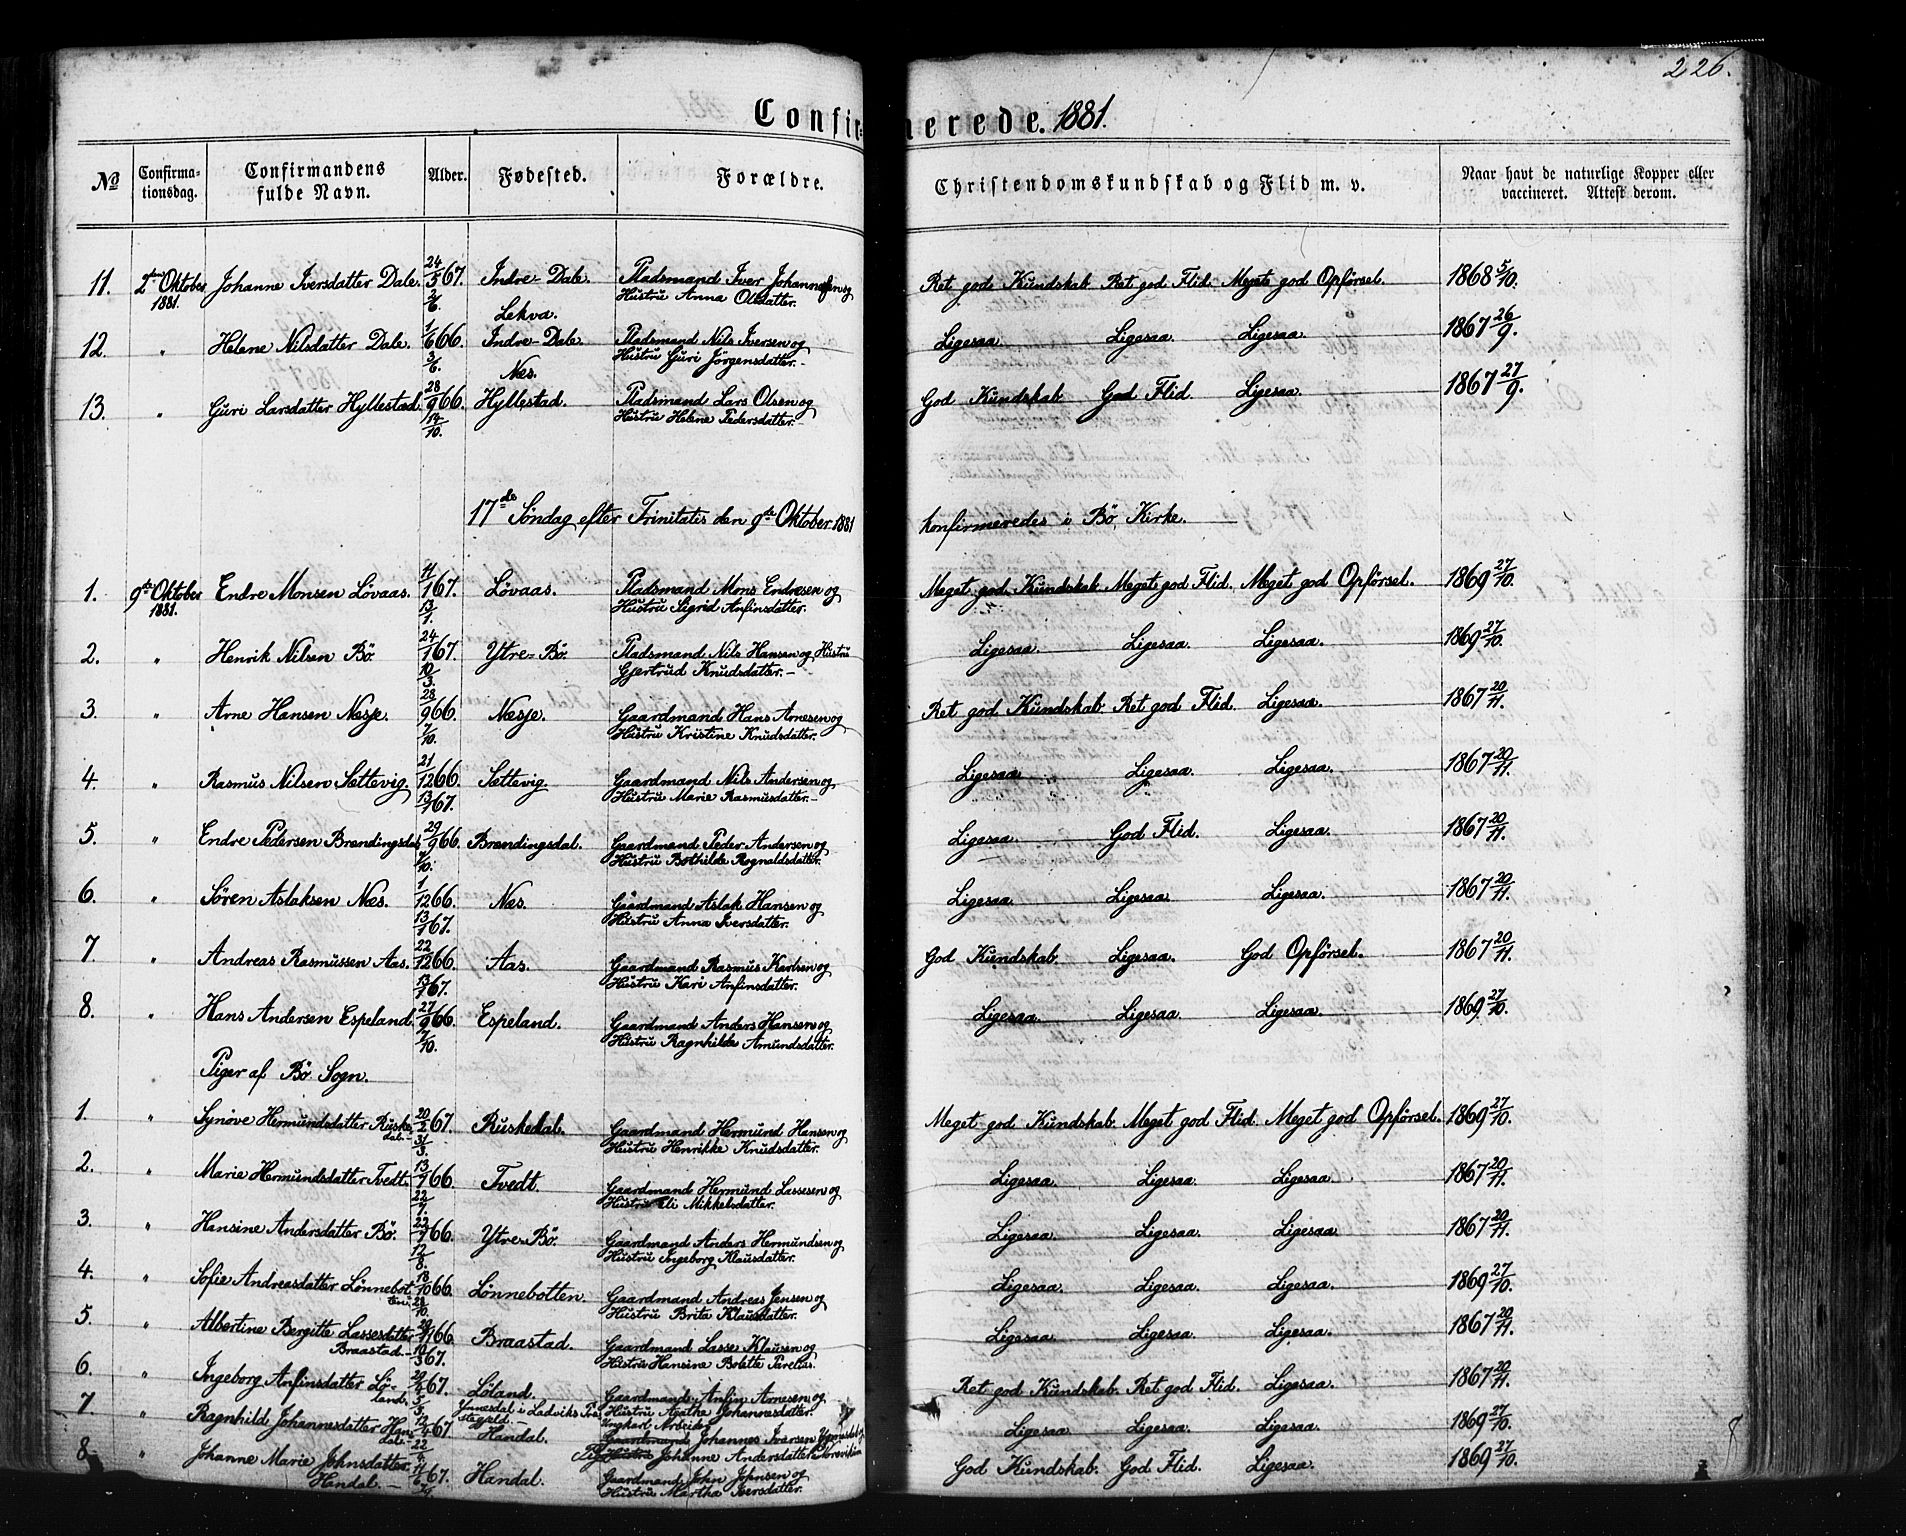 226.
Confirmerede. 1881.
No Confirmationsdag. Confirmandens fulde Navn. Alder. Fødested. Forældre. Christendomskundskab og Flid m. v. Naar havt de naturlige Kopper eller vaccineret. Attest derom.
11. 2den Oktober 1881. Johanne Iversdatter Dale. 24/5 67. 2/6. Indre-Dale. Lekva. Pladsmand Iver Johannesen og Hustru Anna Olsdatter. Ret god Kundskab Ret god Flid. Meget god Opförsel. 1868 5/10.
12. " Helene Nilsdatter Dale. 1/6 66. 3/6. Indre-Dale. Næs. Pladsmand Nils Iversen og Hustru Guri Jörgensdatter. Ligesaa Ligesaa. Ligesaa. 1867 26/9.
13. " Guri Larsdatter Hyllestad. 28/9 66. 14/10. Hyllestad. Pladsmand Lars Olsen og Hustru Helene Pedersdatter. God Kundskab God Flid. Ligesaa. 1867 27/9.
17de Söndag efter Trinitatis den 9de Oktober 1881 konfirmeredes i Bö Kirke.
1. 9de Oktober 1881. Endre Monsen Lövaas. 11/1 67. 13/1. Lövaas. Pladsmand Mons Endresen og Hustru Sigrid Anfinsdatter. Meget god Kundskab. Meget god Flid. Meget god Opförsel. 1869 27/10.
2. " Henrik Nilsen Bö. 24/1 67. 10/3. Ytre-Bö. Pladsmand Nils Hansen og Hustru Gjertrud Knudsdatter. Ligesaa. Ligesaa. Ligesaa. 1869 27/10.
3. " Arne Hansen Nesje. 28/9 66. 7/10. Nesje. Gaardmand Hans Arnesen og Hustru Kristine Knudsdatter. Ret god Kundskab. Ret god Flid. Ligesaa. 1867 20/11.
4. " Rasmus Nilsen Sættevig. 21/12 66. 13/1 67. Sættevig. Gaardmand Nils Andersen og Hustru Marie Rasmusdatter. Ligesaa Ligesaa. Ligesaa. 1867 20/11.
5. " Endre Pedersen Brendingsdal 29/9 66. 7/10. Brendingsdal. Gaardmand Peder Andersen og Hustru Bothilde Rognaldsdatter. Ligesaa. God Flid. Ligesaa. 1867 20/11.
6. " Sören Aslaksen Næs. 1/12 66. 13/1 67. Næs. Gaardmand Aslak Hansen og Hustru Anna Iversdatter. Ligesaa. Ligesaa. Ligesaa. 1867 20/11.
7 " Andreas Rasmussen Aas. 22/12 66. 13/1 67. Aas. Gaardmand Rasmus Karlsen og Hustru Kari Anfinsdatter. God Kundskab. Ligesaa. God Opförsel. 1867 20/11.
8. " Hans Andersen Espeland. 27/9 66. 7/10. Espeland. Gaardmand Anders Hansen og Hustru Ragnhilde Amundsdatter. Ligesaa. Ligesaa. Ligesaa. 1869 27/10.
Piger af Bö Sogn.
1. " Synöve Hermundsdatter Ruskedal. 20/2 67. 31/3. Ruskedal. Gaardmand Hermund Hansen og Hustru Henrikke Knudsdatter. Meget god Kundskab. Meget god Flid. Meget god Opförsel. 1869 27/10.
2. " Marie Hermundsdatter Tvedt. 13/7 66. 22/7. Tvedt. Gaardmand Hermund Lassesen og Hustru Eli Mikkelsdatter. Ligesaa. Ligesaa. Ligesaa. 1867 20/11.
3. " Hansine Andersdatter Bö. 22/7 66. 12/8. Ytre-Bö. Gaardmand Anders Hermundsen og Hustru Ingeborg Klausdatter. Ligesaa. Ligesaa. Ligesaa 1867 20/11.
4. " Sofie Andreasdatter Lönnebotten. 18/10 66. 28/10. Lönnebotten. Gaardmand Andreas Jensen og Hustru Brita Klausdatter. Ligesaa. Ligesaa. Ligesaa. 1869 27/10.
5. " Albertine Bergitte Lassesdatter Braastad. 66. 67. Braastad. Gaardmand Lasse Klausen og Hustru Hansine Bolette Parelius. Ligesaa. Ligesaa. Ligesaa. 1867 20/11.
6. " Ingeborg Anfinsdatter Löland. 67. Löland. Gaardmand Anfin Arnesen og Hustru Agathe Johannesdatter. Ret god Kundskab. Ret god Flid. Ligesaa. 1867 20/11.
7 " Ragnhilde Johannesdatter Handal. 12/4 67. Ynnesdal i Ladviks Præstegjeld. Handal. Ungkarl Arbeider Gaardmand Johannes Iversen Pige Hustru Johanne Andersdatter Ligesaa Ligesaa. Ligesaa. 1869 27/10.
8 " Johanne Marie Johnsdatter Handal. 67. Handal. Gaardmand John Johnsen og Hustru Martha Iversdatter. God Kundskab. God Flid. Ligesaa. 1869 27/10.